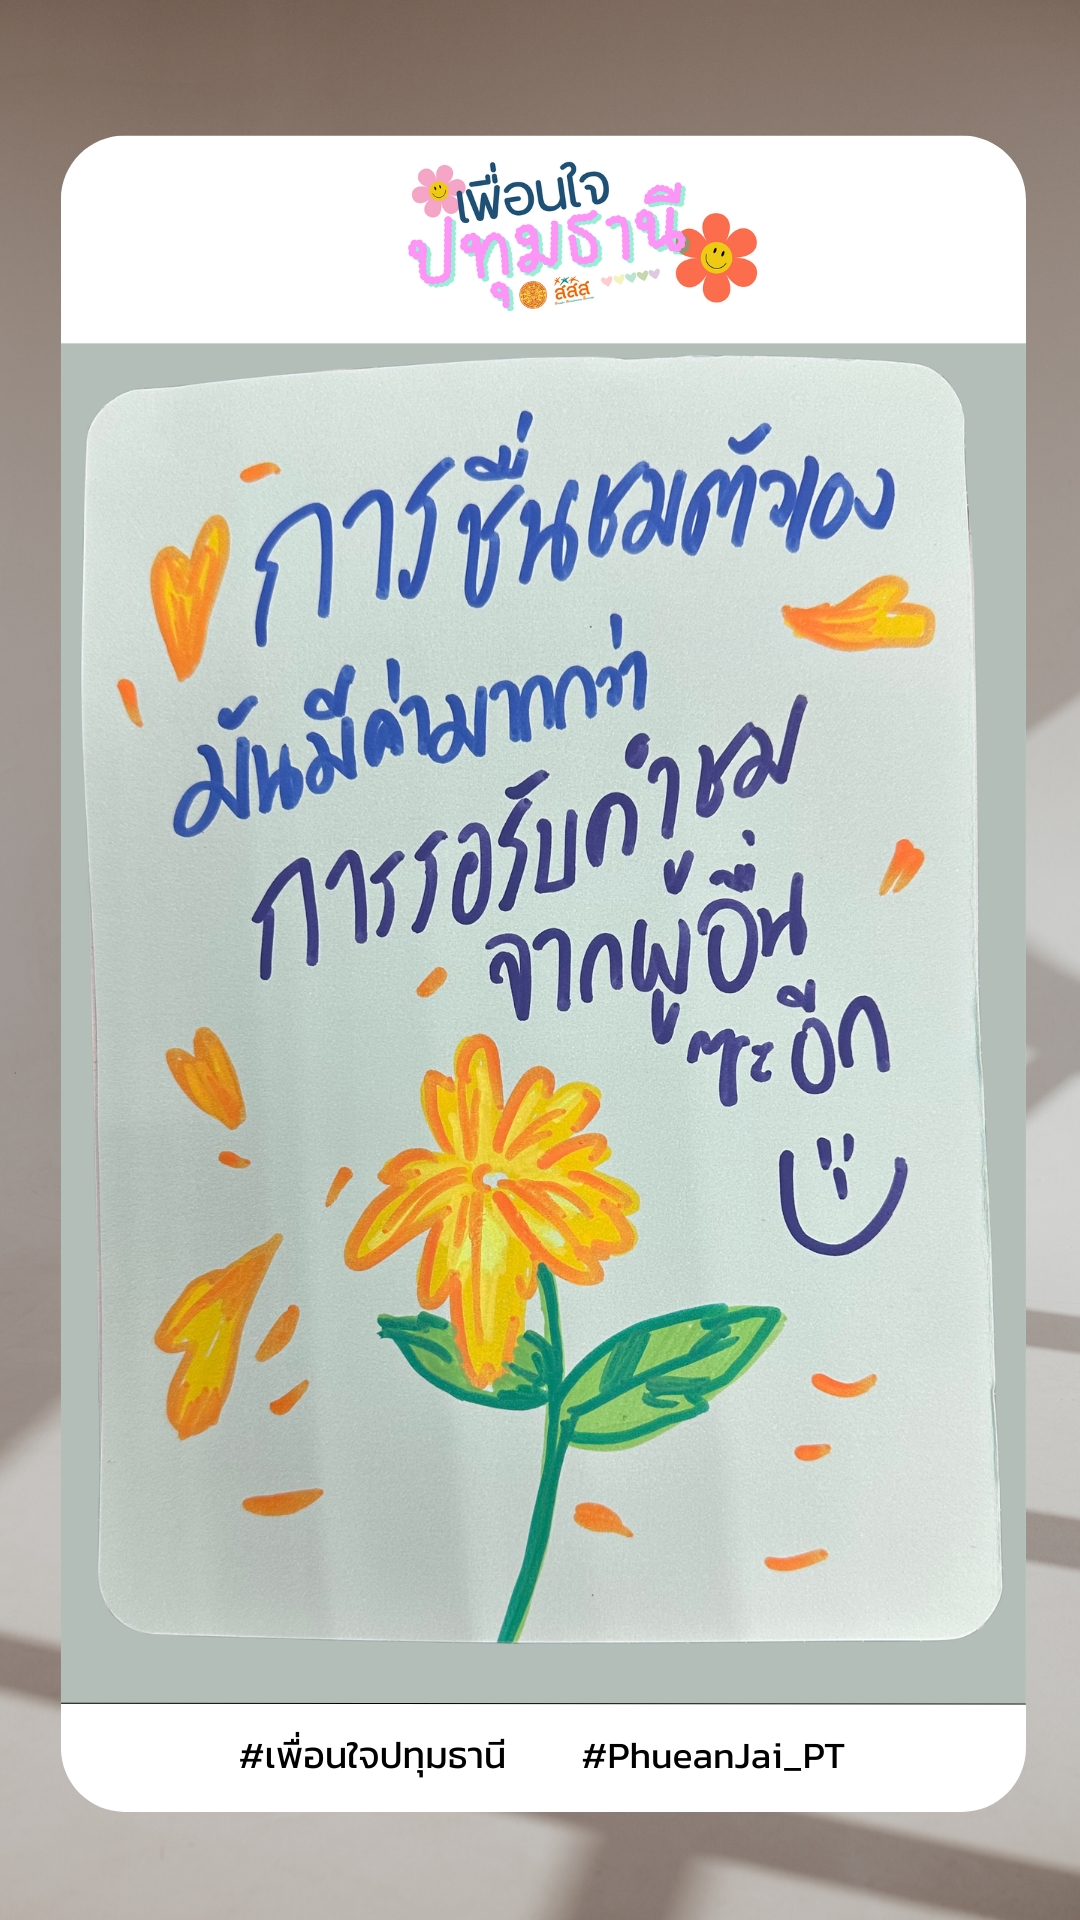 เพื่อนใจ
ปทุมธานี
สสส
การชื่นชมตัวเอง
มันมีค่ามากกว่า
การรอรับคำชม
จากผู้อื่น
ซะอีก
#เพื่อนใจปทุมธานี #PhueanJai_PT